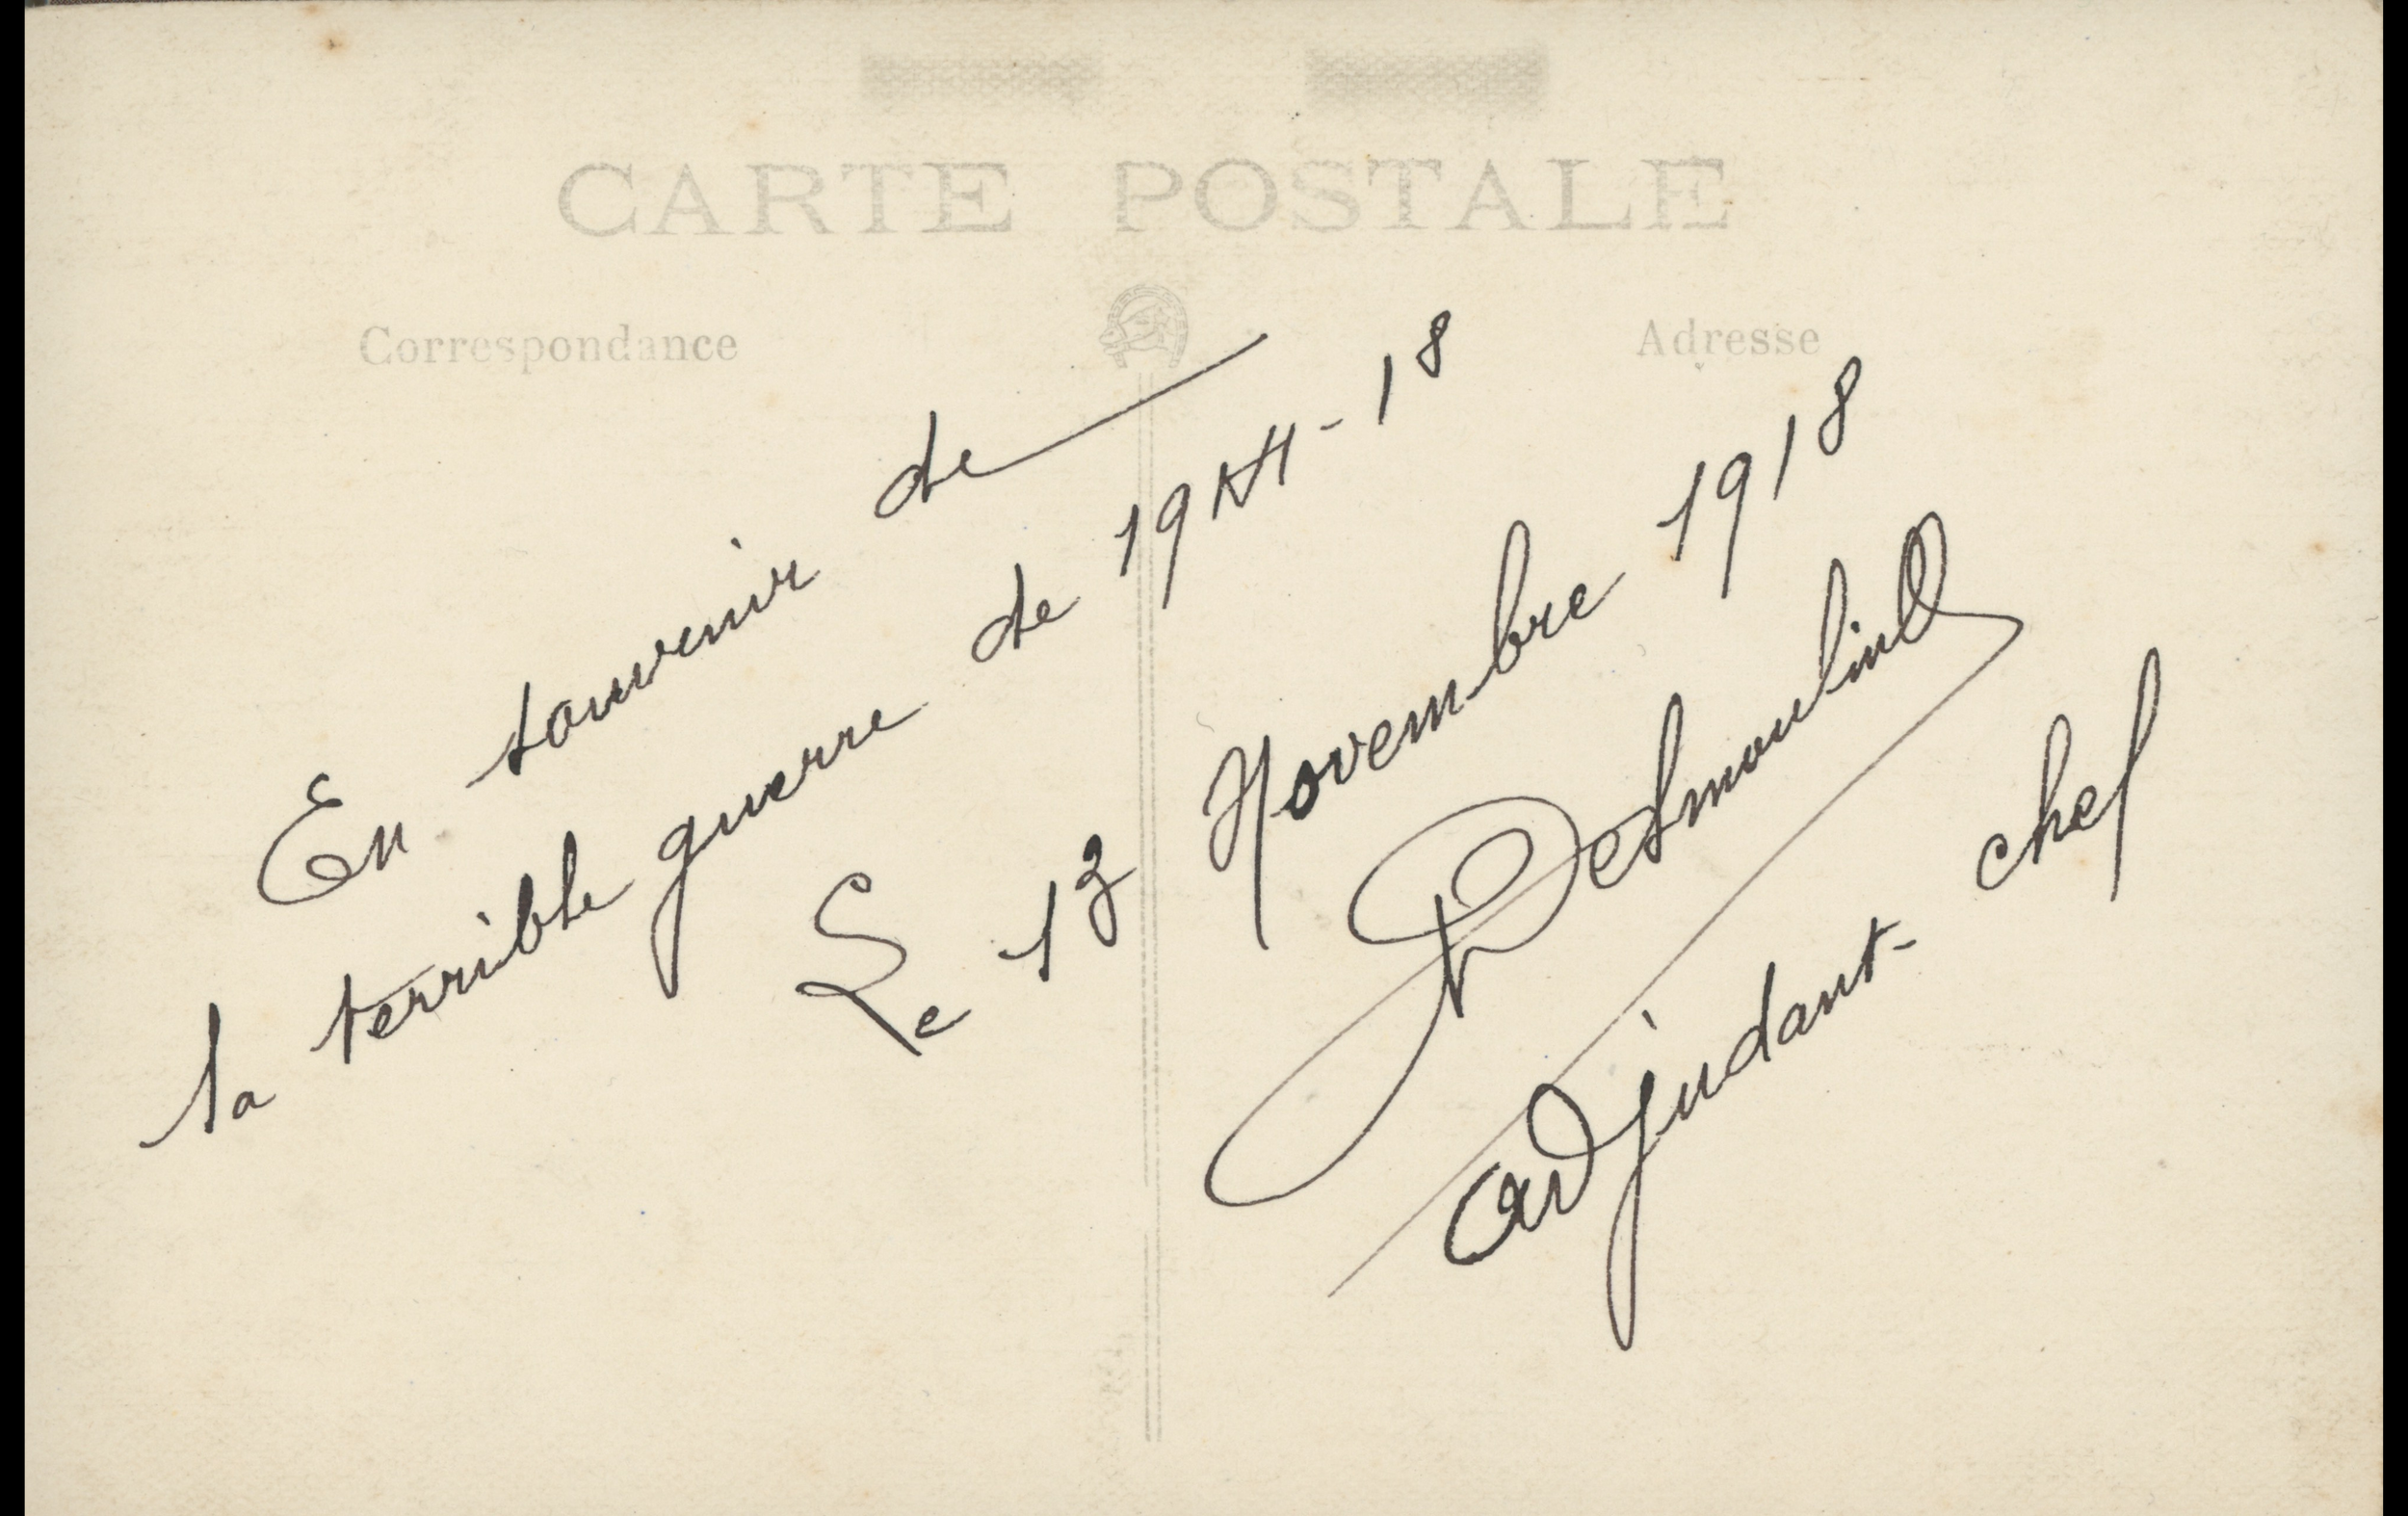 CARTE POSTALE
Correspondance
Adresse
En souvenir de
la terrible guerre de 1914-18
Le 13 Novembre 1918
Desmoulins
adjudant-chef